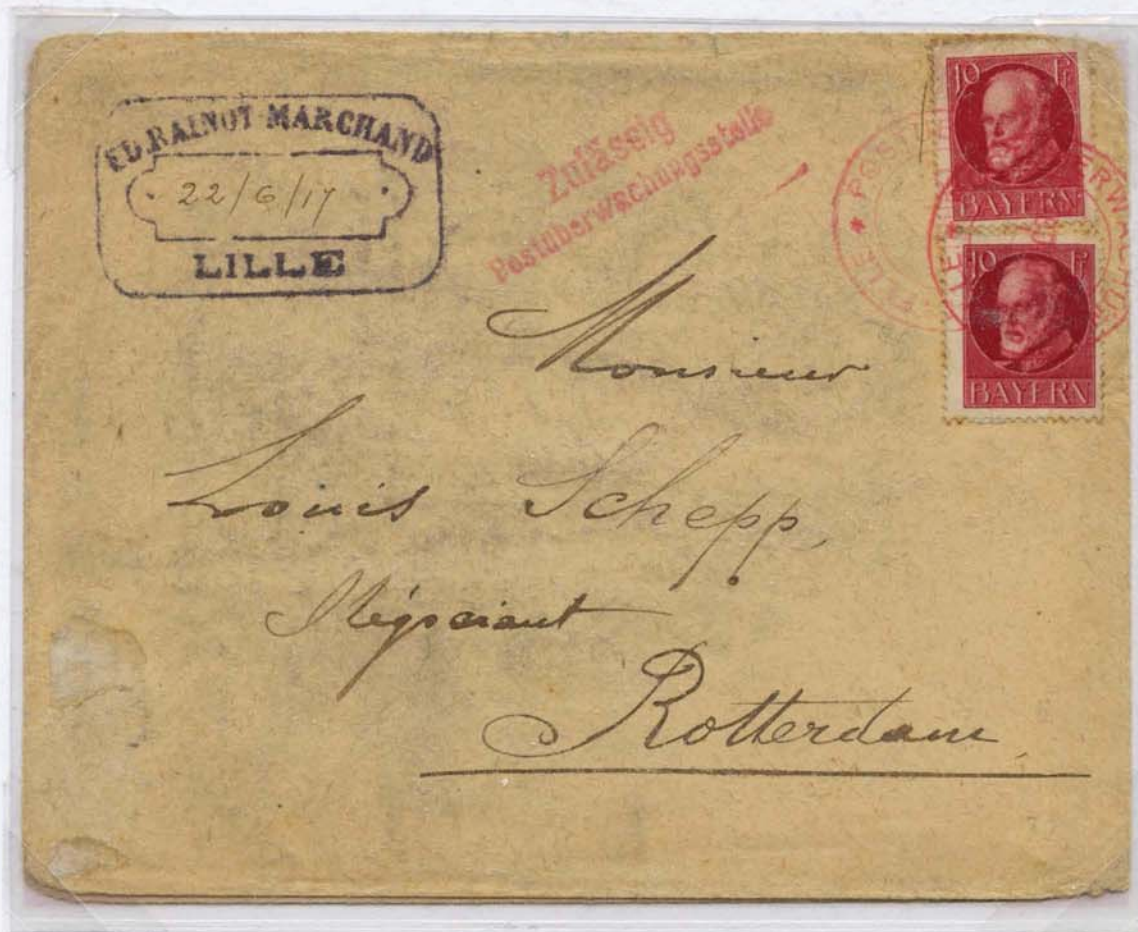 ED. RAINOT MARCHAND
22/6/17
LILLE
Zulässig
Postüberwachungsstelle
10 Pf
BAYERN
10 Pf
BAYERN
Monsieur
Louis Schepp
Négociant
Rotterdam